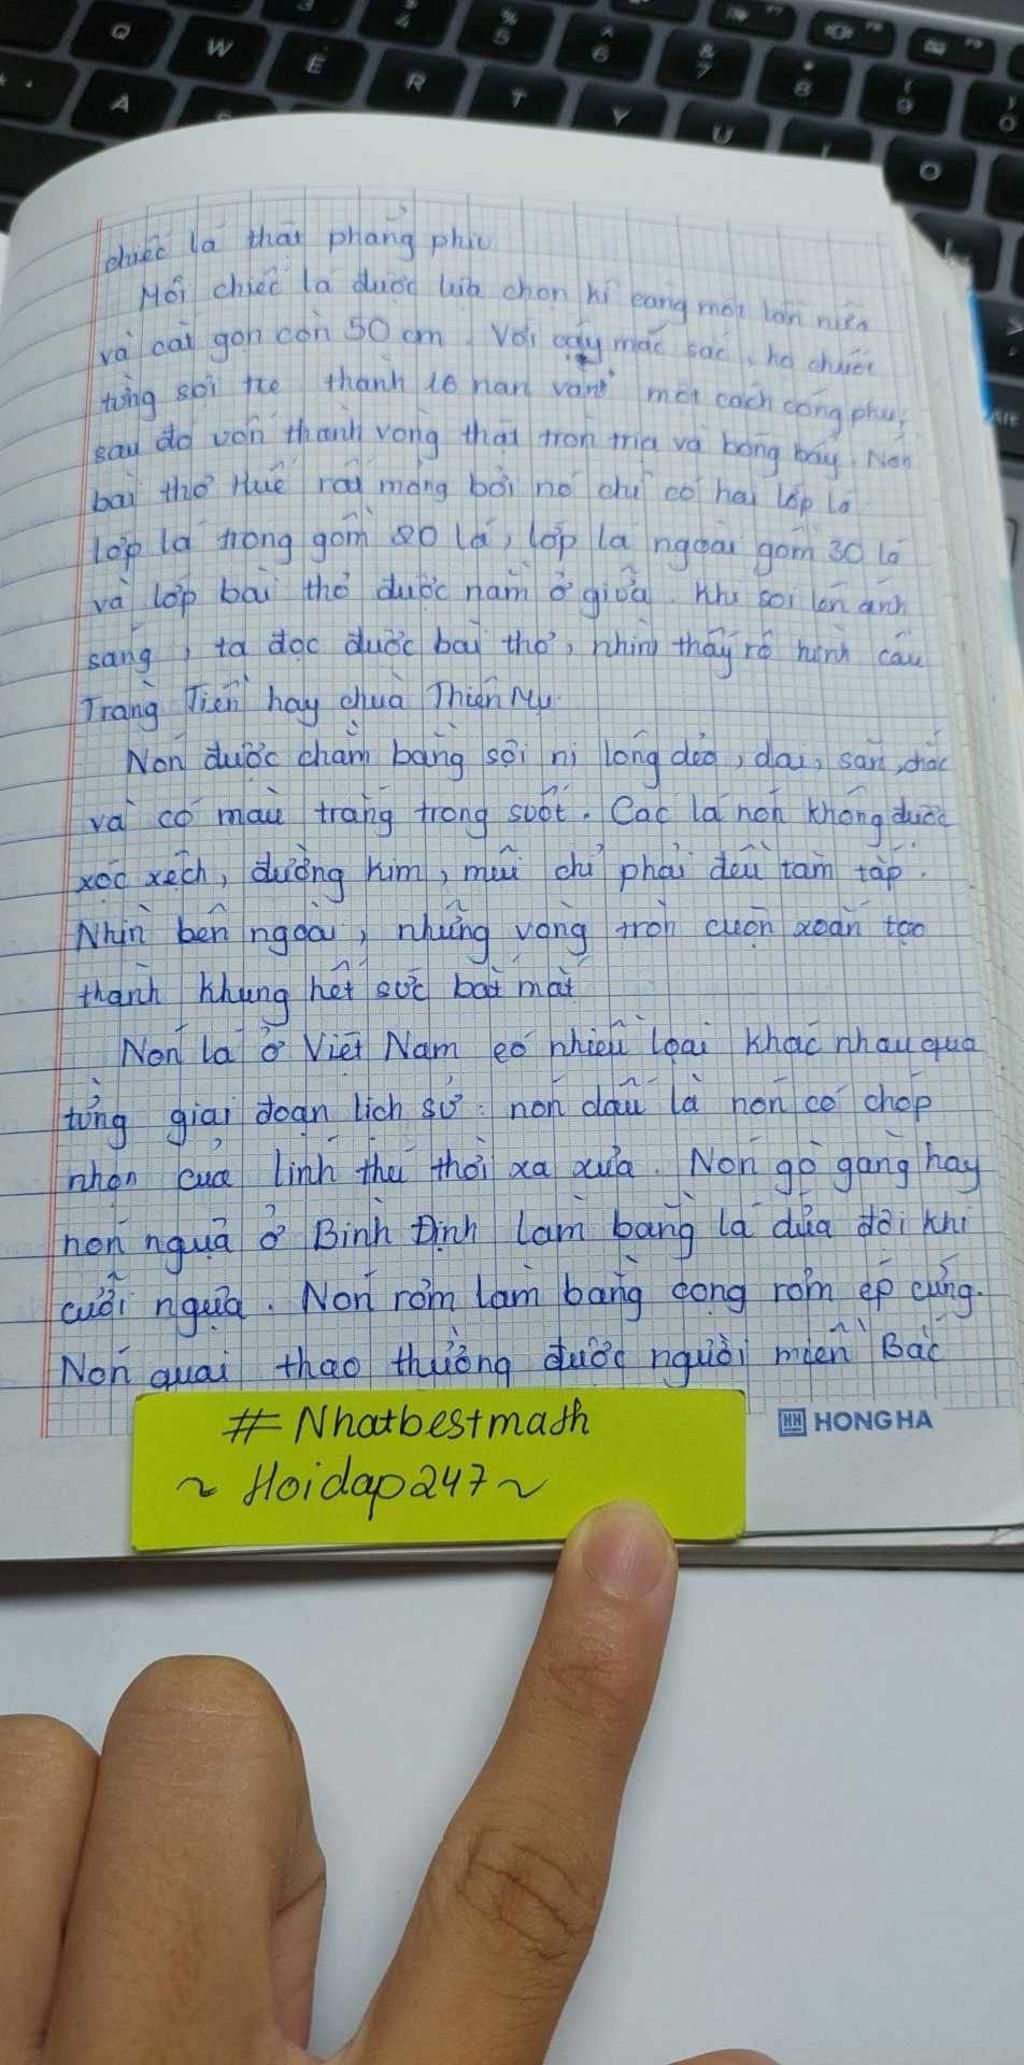 Q W E R T Y U
A
chiếc lá thật phẳng phiu
Mỗi chiếc lá được lựa chọn kĩ càng một lần nữa
và cắt gọn còn 50 cm. Với cây mác sắc, họ chuốt
từng sợi tre thành 16 nan vành một cách công phu,
sau đó uốn thành vòng thật tròn trịa và bóng bẩy. Nón
bài thơ Huế rất mỏng bởi nó chỉ có hai lớp lá
lớp lá trong gồm 20 lá, lớp lá ngoài gồm 30 lá
và lớp bài thơ được nằm ở giữa. Khi soi lên ánh
sáng, ta đọc được bài thơ, nhìn thấy rõ hình cầu
Tràng Tiền hay chùa Thiên Mụ.
Nón được chằm bằng sợi ni lông dẻo, dai, săn, chắc
và có màu trắng trong suốt. Các lá nón không được
xộc xệch, đường kim, mũi chỉ phải đều tăm tắp.
Nhìn bên ngoài, những vòng tròn cuộn xoắn tạo
thành khung hết sức bắt mắt
Nón lá ở Việt Nam có nhiều loại khác nhau qua
từng giai đoạn lịch sử: nón dấu là nón có chóp
nhọn của lính thú thời xa xưa. Nón gò găng hay
nón ngựa ở Bình Định làm bằng lá dứa đội khi
cưỡi ngựa. Nón rơm làm bằng cọng rơm ép cứng.
Nón quai thao thường được người miền Bắc
HH HONG HA
#Nhatbestmath
~ Hoidap247 ~